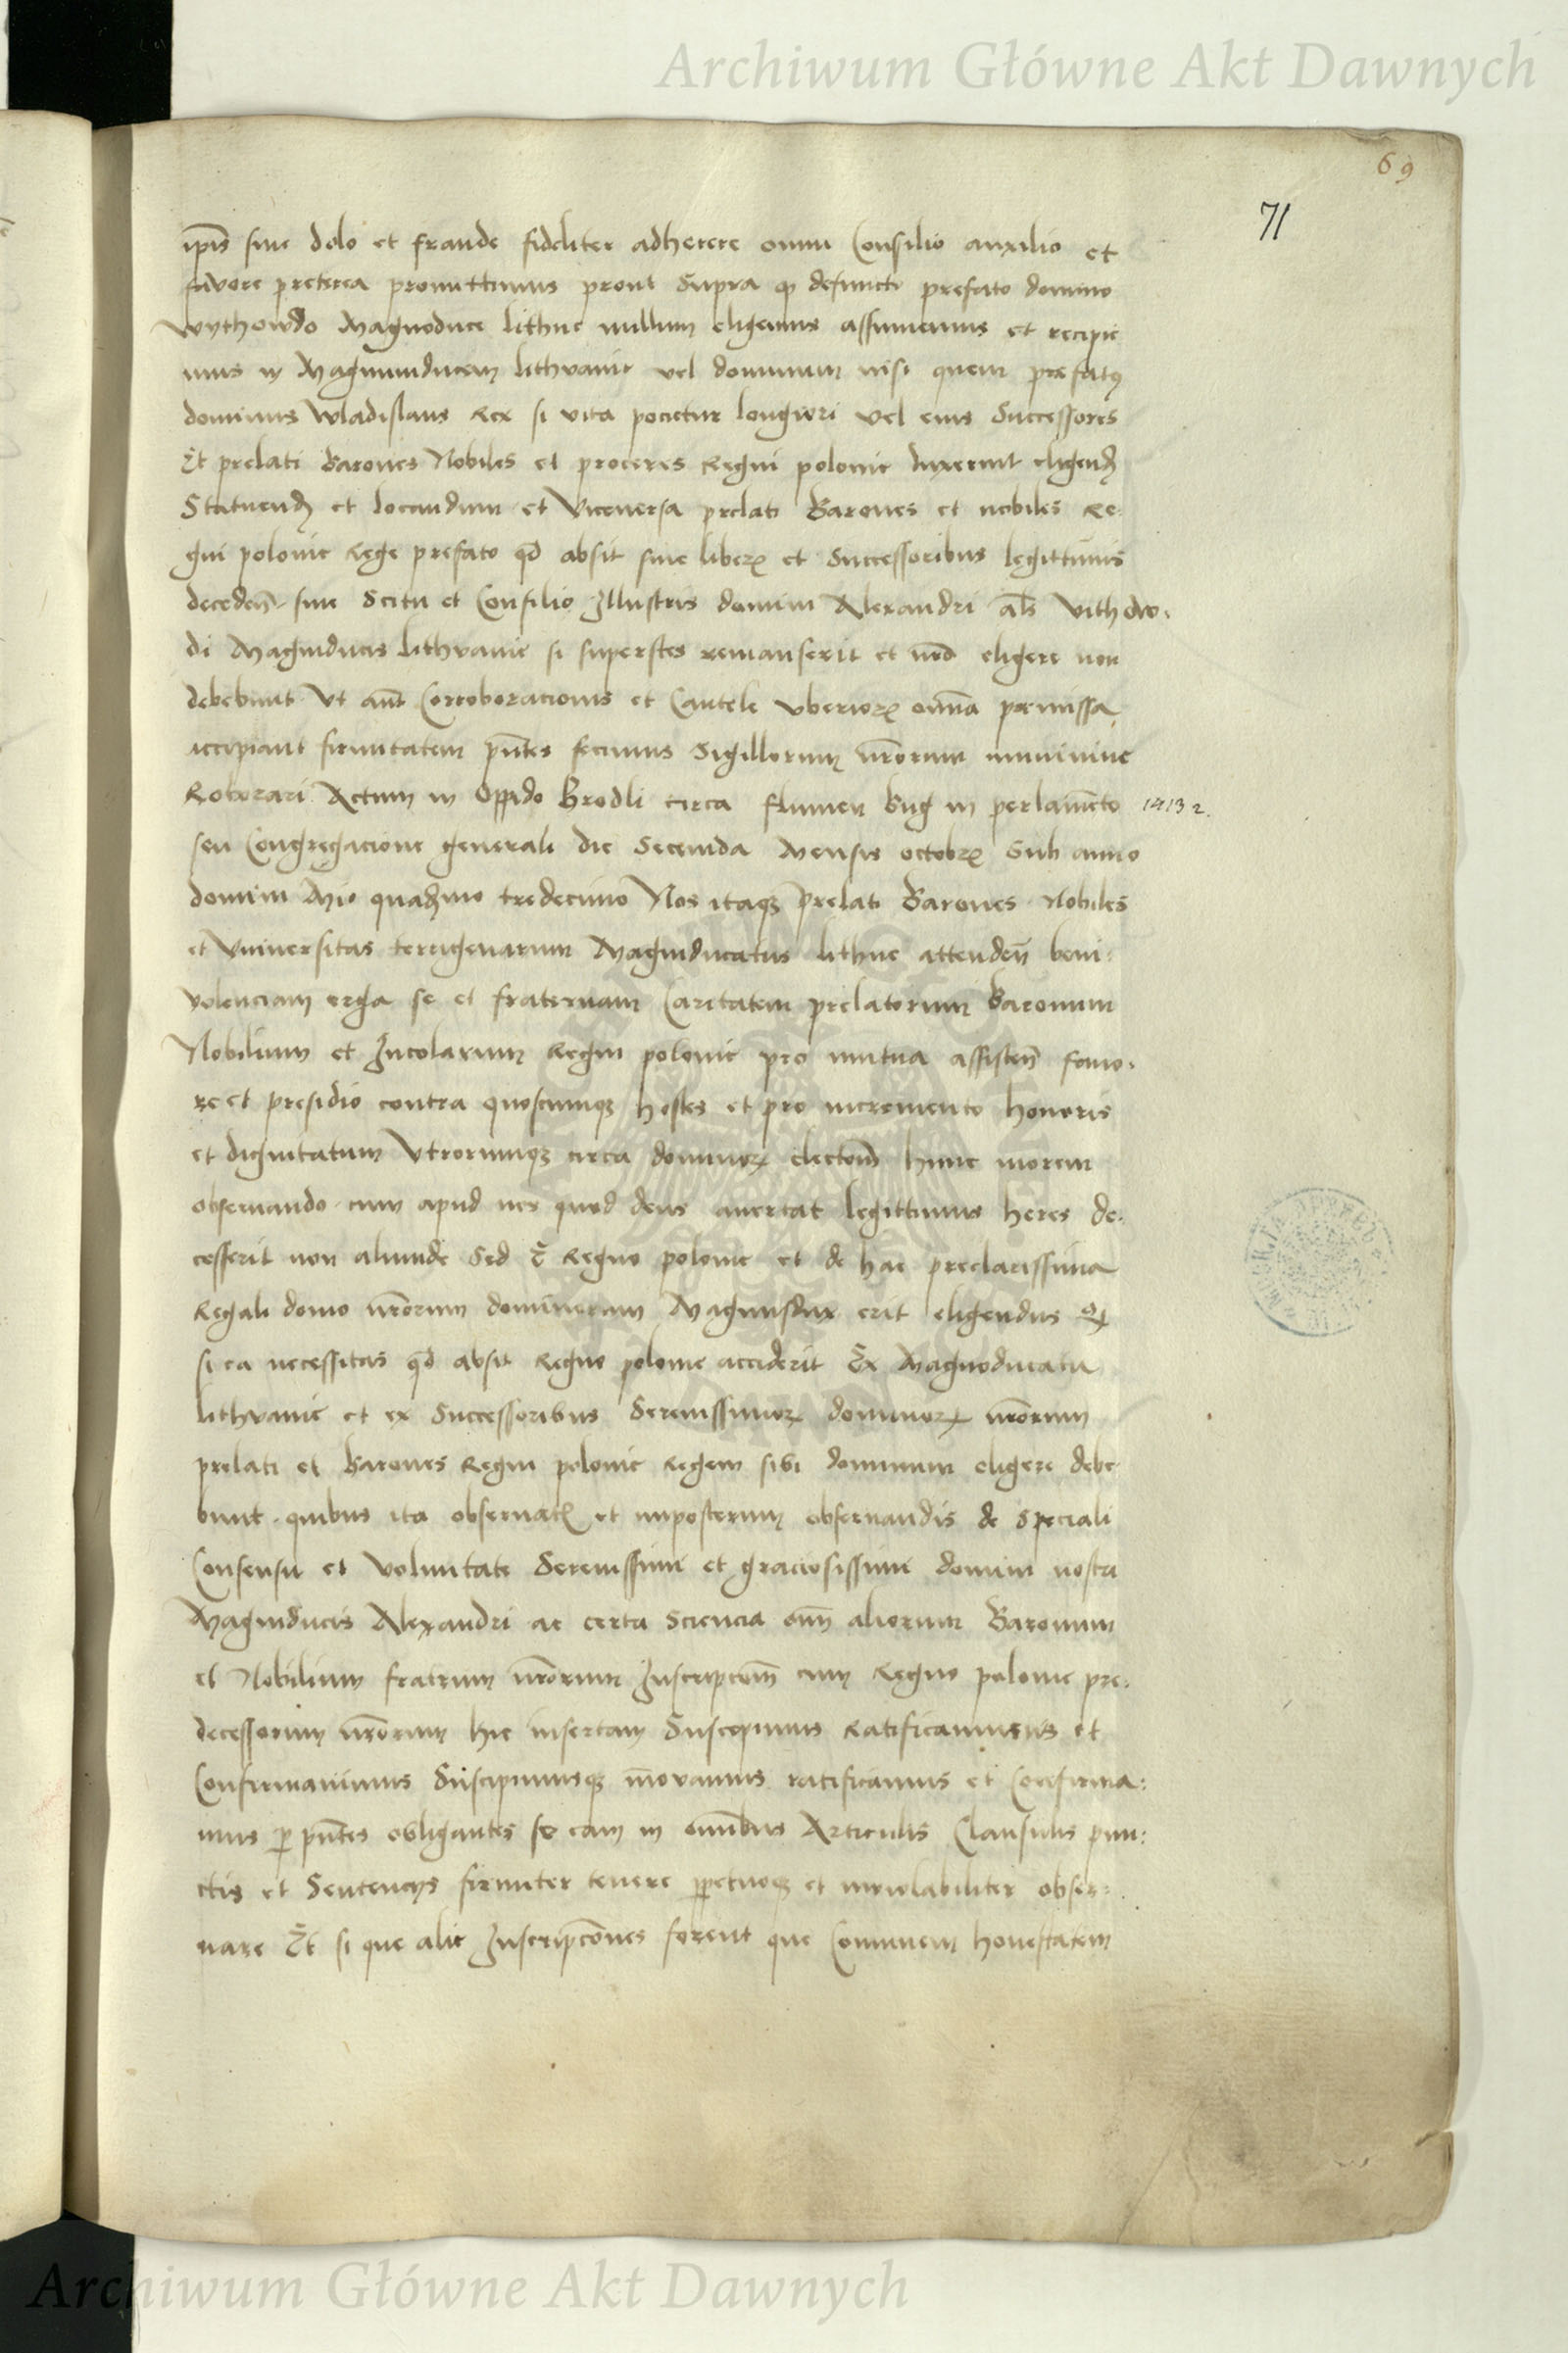 Archiwum Główne Akt Dawnych
69
71
ip̄is sine dolo et fraude fideliter adherere omni Consilio auxilio et
favore preterea promittimus prout Supra q̄ defuncti prefato domino
Wythowdo Magnoduce lithue nullum eligemus assumemus et recipie
mus in Magnumducem lithvanie vel dominum nisi quem prefatꝯ
dominus Wladislaus Rex si vita pocietur longiori vel eius Successores
Et prelati Barones Nobiles et proceres Regni polonie duxerint eligend̄
Statuend̄ et locandum et Viceversa prelati Barones et nobiles Re:
gni polonie Rege prefato qd̄ absit sine liberꝝ et Successoribus legittimis
deceden̄ sine Scitu et Consilio Illustris domini Alexandri al̄s Vithow:
di Magniducis lithvanie si superstes remanserit et eligere non
debebunt Ut aūt Corroboracionis et Cautele vberiorꝝ om̄ia premissa
accipiant firmitatem p̄ntes fecimus Sigillorum nr̄orum munimine
Roborari Actum in Oppido Brodli circa flumen Bug in perlamēto
1413 r.
seu Congregacione generali die Secunda Mensis octobrꝝ Sub anno
domini Mi̅o quad̄mo tredecimo Nos itaqꝫ prelati Barones Nobiles
et Vniversitas terrigenarum Magniducatus lithue attenden̄ beni:
volenciam erga se et fraternam Caritatem prelatorum Baronum
Nobilium et Incolarum Regni polonie pro mutua assisten̄ fauo:
re et presidio contra quoscumqꝫ hostes et pro incremento honoris
et dignitatum Vtrorumqꝫ circa dominorꝝ electom̄ hunc morem
obseruando cum apud nos quod deus auertat legittimus heres de:
cesserit non aliunde Sed ē Regno polonie et de hac preclarissima
Regali domo nr̄orum dominorum Magnusdux erit eligendus Et
si ea necessitas qd̄ absit Regno polonie acciderit Ex Magnoducatu
lithvanie et ex Successoribus Serenissimorꝝ dominorꝝ nr̄orum
prelati et Barones Regni polonie Regem sibi dominum eligere debe
bunt quibus ita obseruatꝭ et imposterum obseruandis de speciali
Consensu et Voluntate Serenissimi et graciosissimi domini nostri
Magniducis Alexandri ac certa Sciencia om̄ aliorum Baronum
et Nobilium fratrum nr̄orum Inscripcōm cum Regno polonie pre:
decessorum nr̄orum hic insertam Suscepimus Ratificamus et
Confirmauimus Suscipimusqꝫ īnovamus ratificamus et Confirma:
mus ꝑ p̄ntes obligantes se eam in omībus Articulis Clausulis pun:
ctis et Sentencys firmiter tenere ꝑpetuoqꝫ et inviolabiliter obser:
uare Et si que alie Inscripcōnes forent que Communem honestatem
Archiwum Główne Akt Dawnych